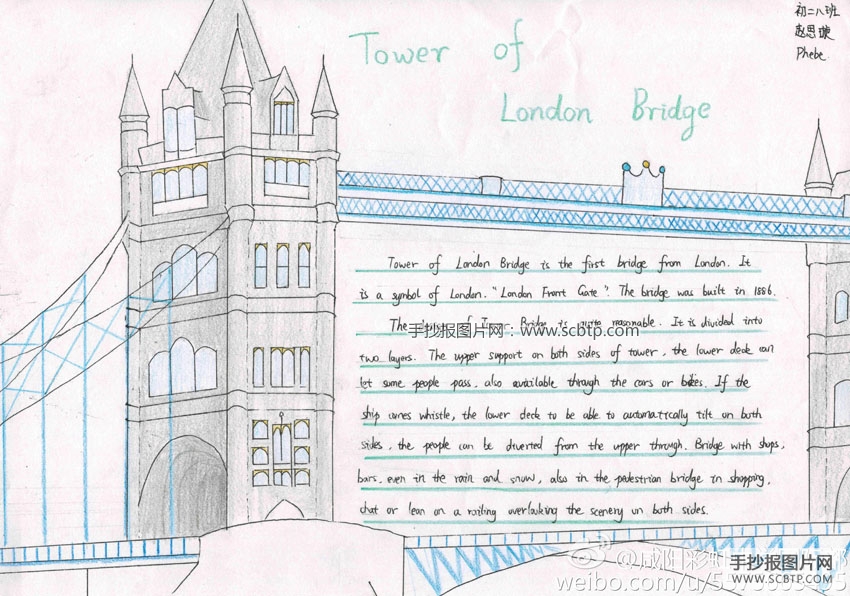 Tower of
London Bridge
初二八班
赵思璇
Phebe
Tower of London Bridge is the first bridge from London. It
is a symbol of London. "London Front Gate". The bridge was built in 1886.
The of Tower Bridge is quite reasonable. It is divided into
手抄报图片网:www.scbtp.com
two layers. The upper support on both sides of tower, the lower deck can
let some people pass, also available through the cars or bikes. If the
ship comes whistle, the lower deck to be able to automatically tilt on both
sides, the people can be diverted from the upper through. Bridge with shops,
bars, even in the rain and snow, also in the pedestrian bridge in shopping,
chat or lean on a railing overlooking the scenery on both sides.
手抄报图片网
WWW.SCBTP.COM
weibo.com/u/55